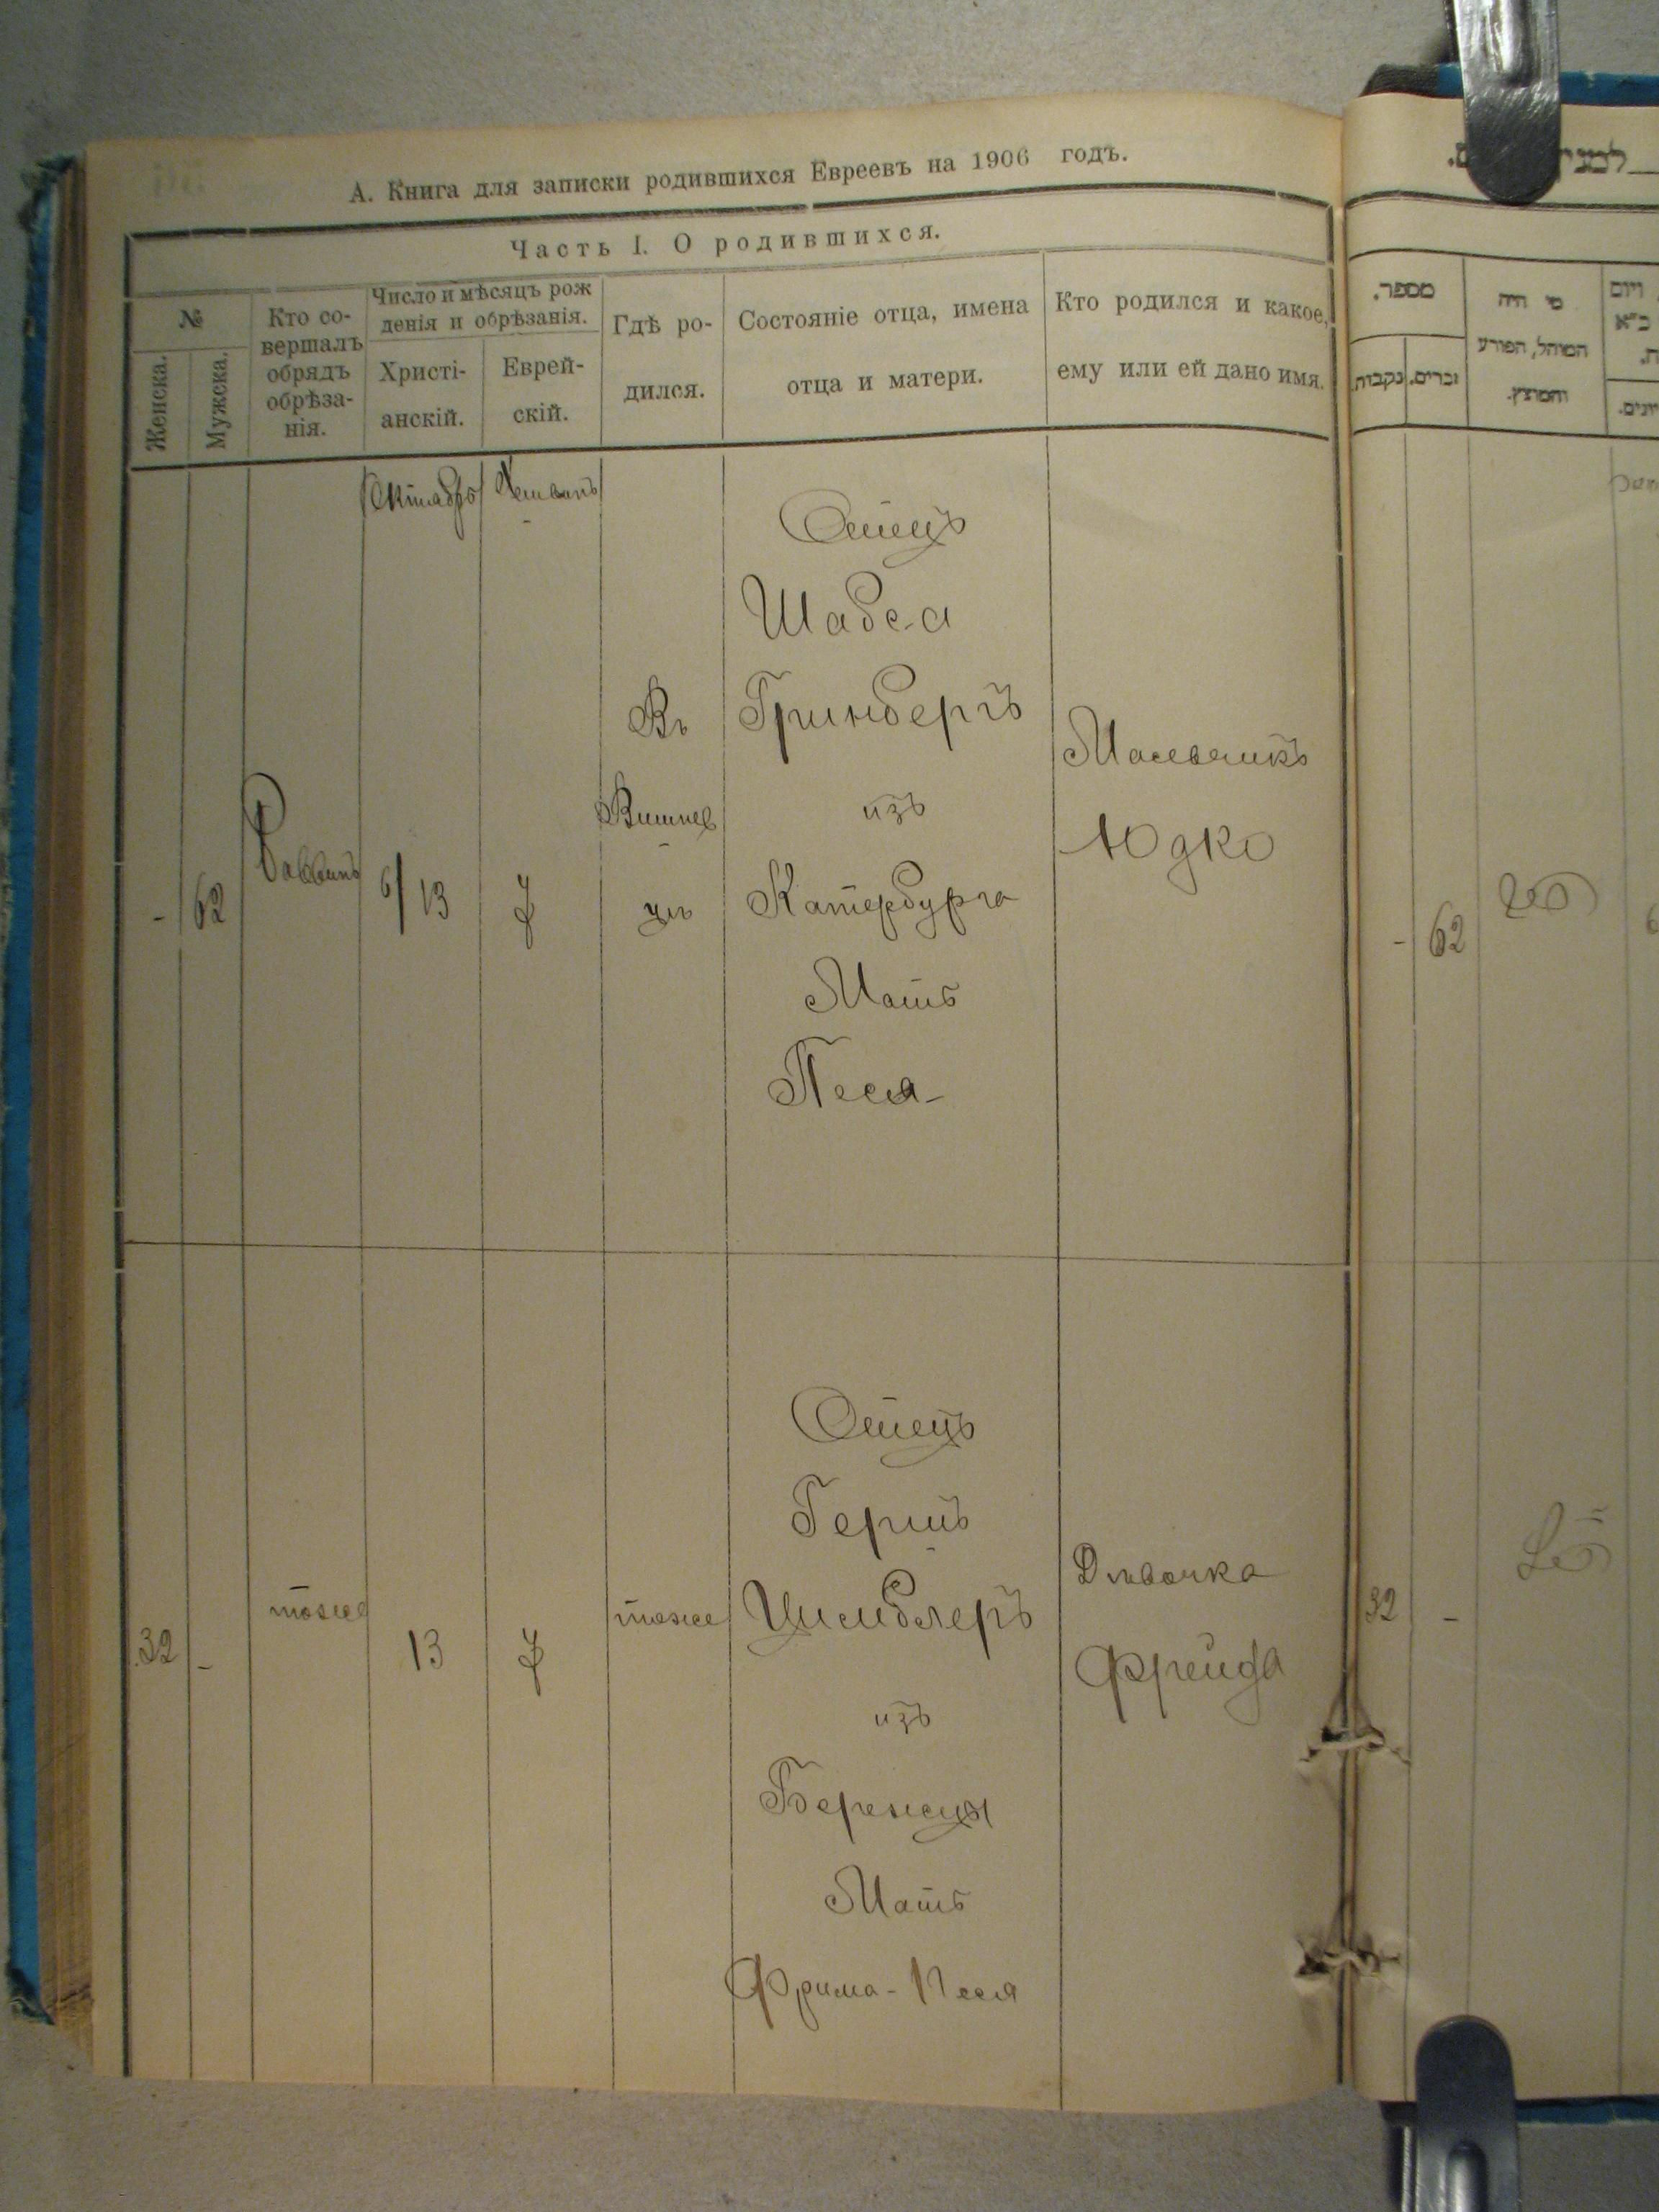 А. Книга для записки родившихся Евреевъ на 1906 годъ.
Часть I. О родившихся.
№
Женска.
Мужска.
Кто со-
вершалъ
обрядъ
обрѣза-
нія.
Число и мѣсяцъ рож
денія и обрѣзанія.
Христі-
анскій.
Еврей-
скій.
Гдѣ ро-
дился.
Состояніе отца, имена
отца и матери.
Кто родился и какое,
ему или ей дано имя.
Октябрь
Хешванъ
-
62
Раввинъ
6/13
Въ
Вишнев
цѣ
Отецъ
Шабса
Гринбергъ
изъ
Катербурга
Мать
Песя
Мальчикъ
Юдко
32
-
тоже
13
тоже
Отецъ
Гершъ
Цимблеръ
изъ
Бережцы
Мать
Фрима-Песя
Дѣвочка
Фрейда
מספר.
נקבות.
זכרים.
מי היה
המוהל, הפורע
והמוצץ.
-
62
32
-